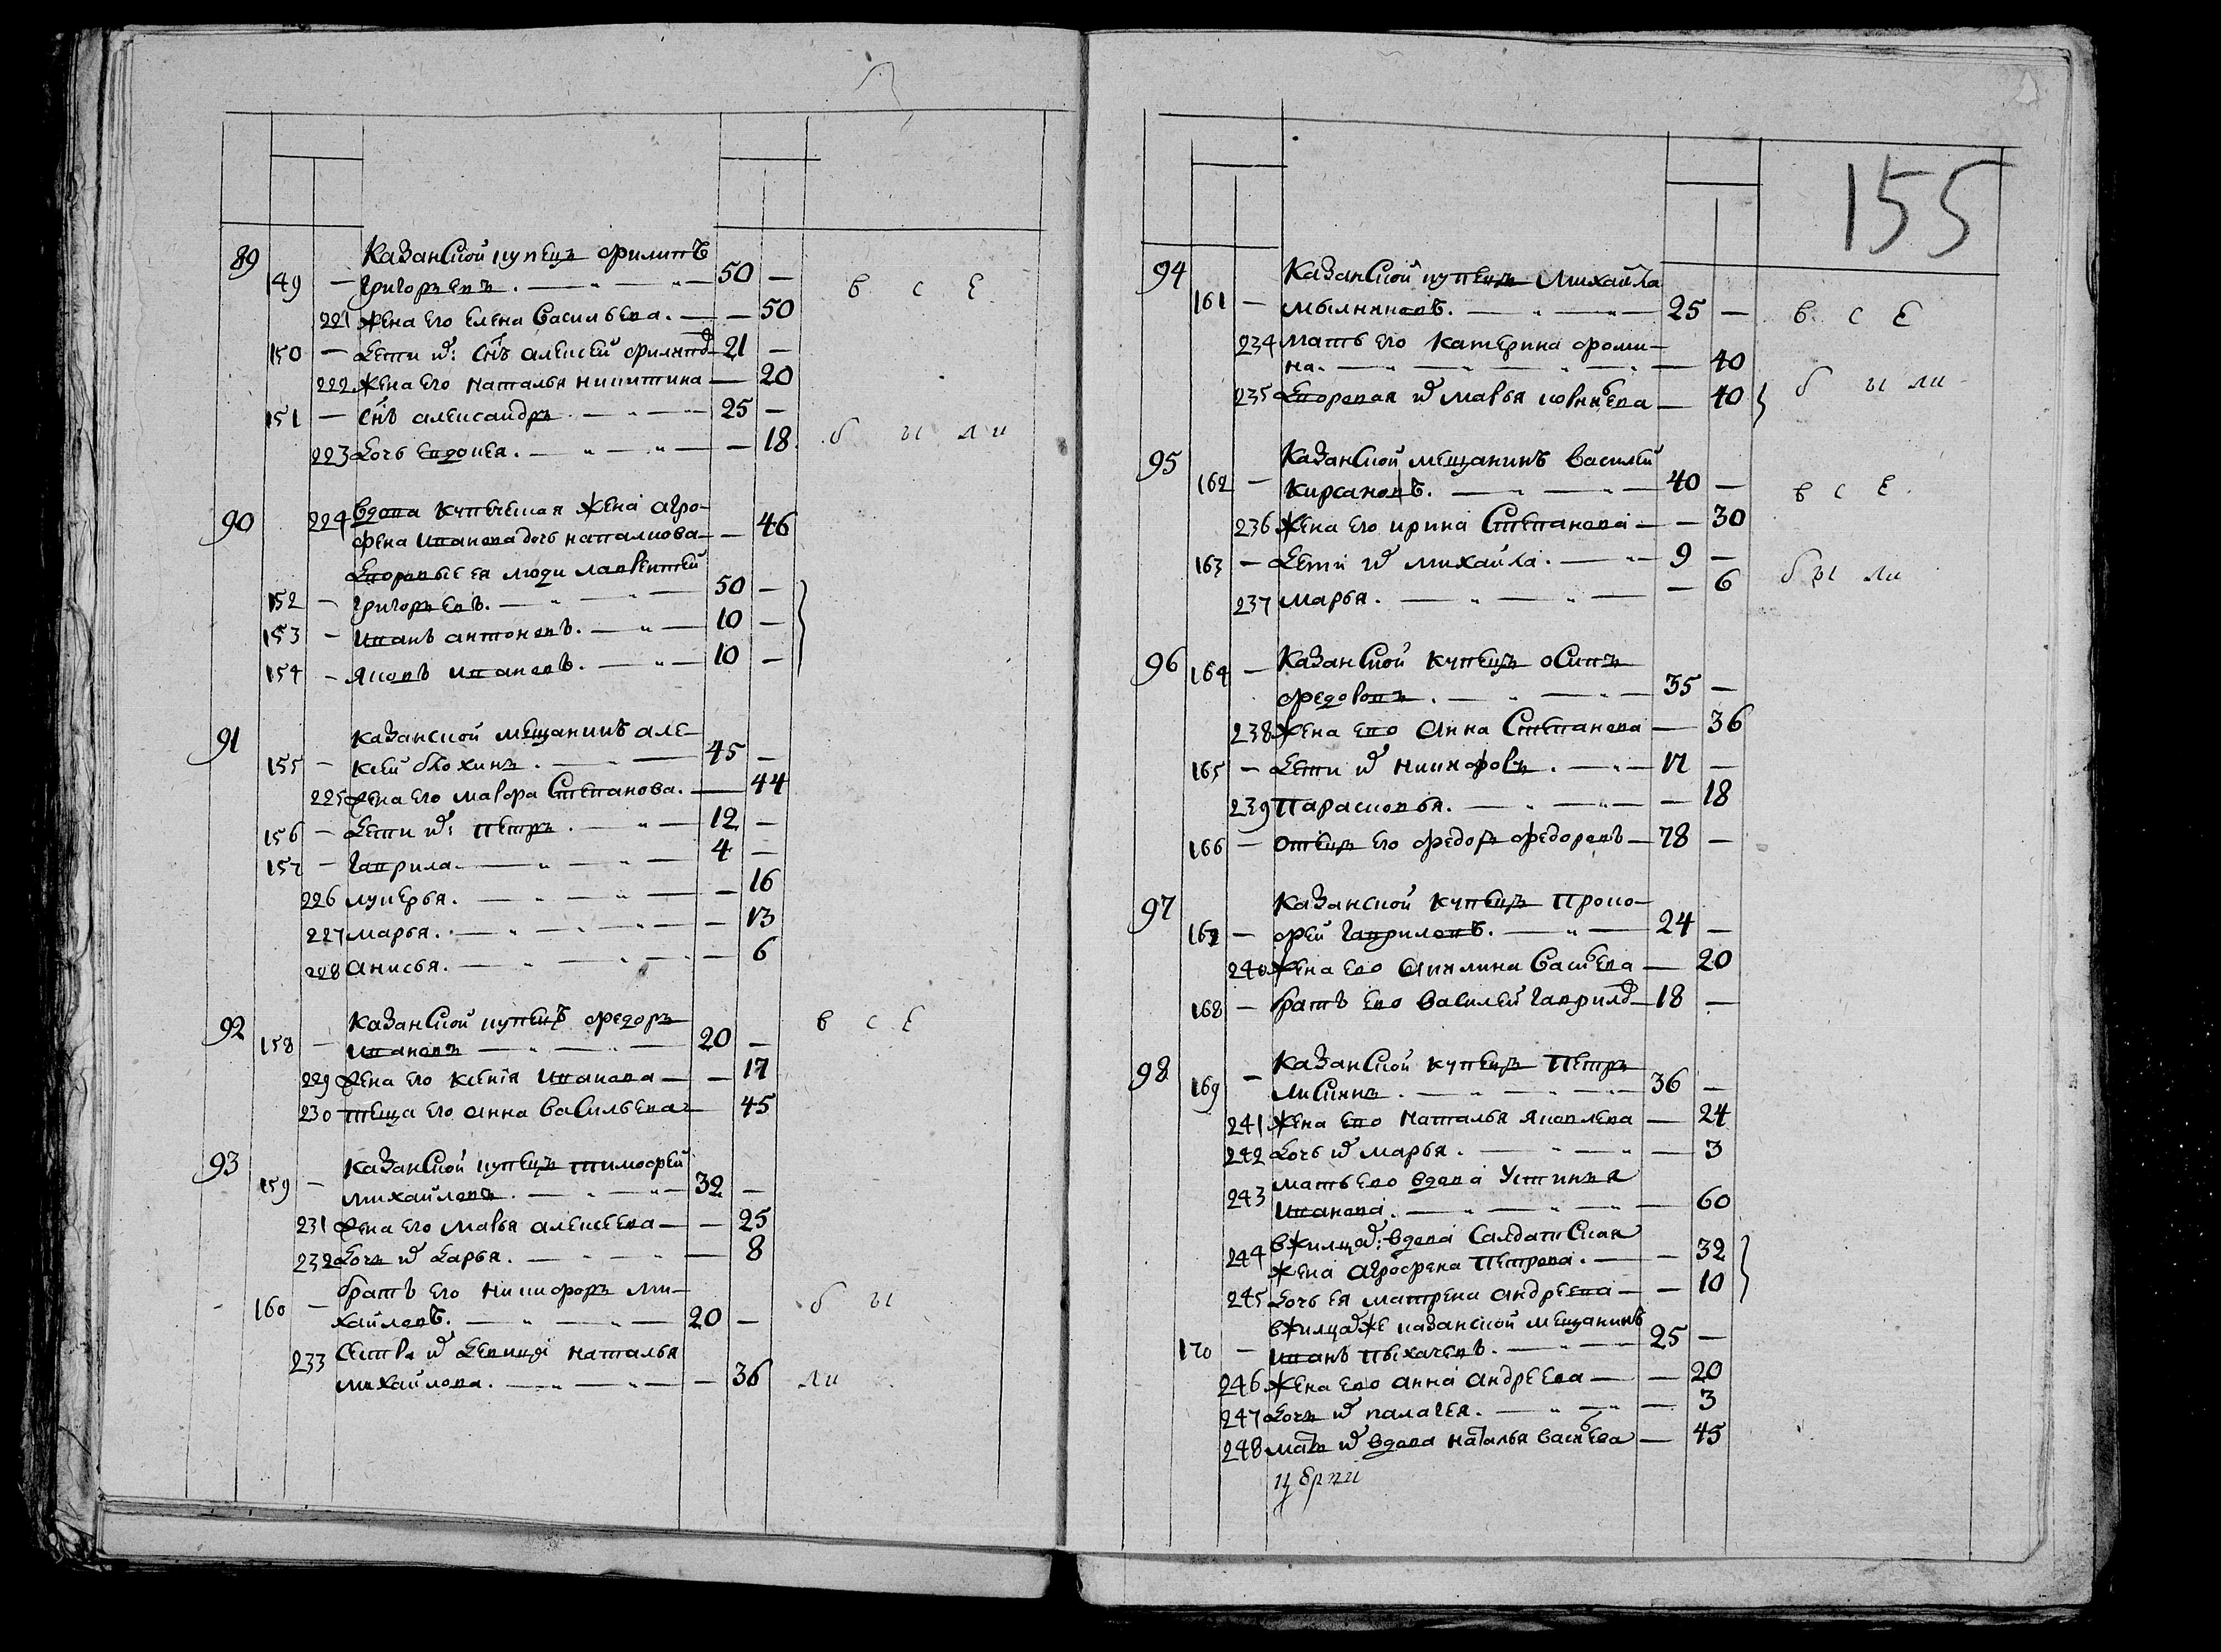 89 Казанской купецъ Филипъ
149 — Григорьевъ. — 50 —
221 жена его Елена Васильева. — — 50
150 — Дети их: снъ Алексей Филипо 21 —
222 жена его Наталья Никитина — 20
151 — Снъ Александръ — 25 —
223 Дочь Евдокея. — — 18
90 224 вдова купеческая жена Агро-
фена Иванова дочь Наталиова — — 46
Дворовые ея люди Лаврентей
152 — Григорьевъ. — 50 —
153 — Иванъ Антоновъ. — 10 —
154 — Яковъ Ивановъ. — 10 —
91 Казанской мещанинъ Але-
155 — ксей Блохинъ. — 45 —
225 жена его Мавра Степанова. — 44
156 — Дети их: Петръ. — 12 —
157 — Гаврила — 4 —
226 Лукерья. — — 16
227 Марья. — — 13
228 Анисья. — — 6
92 Казанской купецъ Федоръ
158 — Ивановъ — 20 —
229 жена его Ксения Иванова — — 17
230 теща его Анна Васильева — 45
93 Казанской купецъ Тимофей
159 — Михайловъ. — 32 —
231 жена его Мавья Алексеева — — 25
232 Дочь их Дарья. — — 8
братъ его Никифоръ Ми-
160 — хайловъ. — 20 —
233 Сестра их девица Наталья
Михайлова. — — 36
в с Е
были
в с Е
бы
ли
155
94 Казанской купецъ Михайла
161 — Мыльниковъ. — 25 —
234 мать его Катерина Фоми-
на. — — 40
235 Дворовая их Мавья — 40
95 Казанской мещанинъ Василей
162 — Кирсановъ. — 40 —
236 жена его Ирина Степанова — — 30
163 — Дети их Михайла. — 9 —
237 Марья. — — 6
96 164 — Казанской купецъ Осипъ
Федоровъ. — 35 —
238 жена ево Анна Степанова — 36
165 — Дети их Никифоръ. — 17 —
239 Парасковья. — — 18
166 — Отецъ его Федоръ Федоровъ — 78 —
97 Казанской купецъ Проко-
167 — фей Гавриловъ. — 24 —
240 жена ево Акилина Васильева — 20
168 — братъ ево Василей Гаврило — 18 —
98 Казанской купецъ Петръ
169 — Лисинъ. — 36 —
241 жена ево Наталья Яковлева — 24
242 Дочь их Марья. — — 3
243 мать ево вдова Устинья
Иванова. — — 60
244 в жилцах: вдова Салдатская
жена Агрофена Петрова. — — 32
245 Дочь ея Матрена Андреева — — 10
в жилцах же казанской мещанинъ
170 — Иванъ Пыхачевъ. — 25 —
246 жена ево Анна Андреева — — 20
247 Дочь их Палагея. — — 3
248 мать их вдова Наталья Васильева — 45
церкви
в с Е
были
в с Е
были